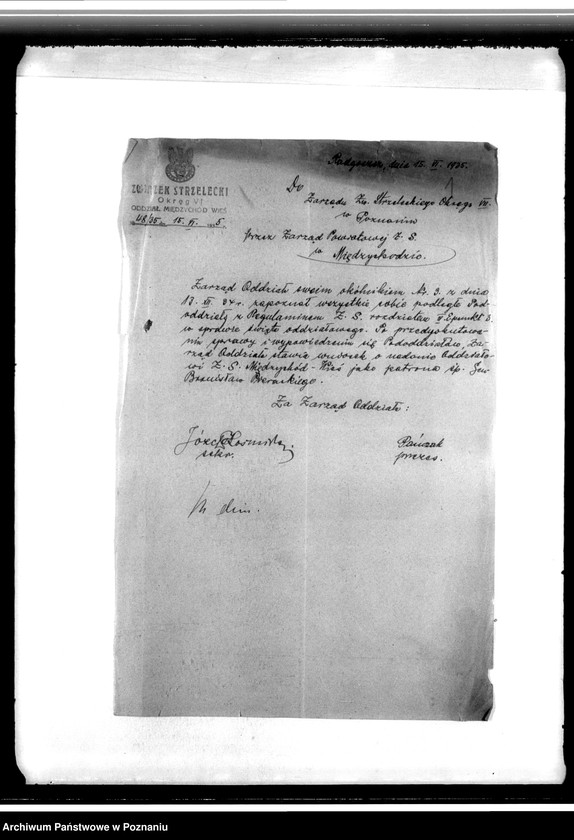 Radgoszcz, dnia 15. VI. 1935.
ZWIĄZEK STRZELECKI
Okręg VII
ODDZIAŁ MIĘDZYCHÓD WIEŚ
L. 48/35 15. VI. 5
Do
Zarządu Zw. Strzeleckiego Okręgu VII.
w Poznaniu
przez Zarząd Powiatowej Z. S.
w Międzychodzie.
Zarząd Oddziału swoim okólnikiem Nr. 3. z dnia
13. XII 34 r. zapoznał wszystkie sobie podległe Pod-
oddziały z Regulaminem Z. S. rozdziałem punkt 3.
w sprawie święta oddziałowego. Po przedyskutowa-
niu sprawy i wypowiedzeniu się Pododdziałów, Za-
rząd Oddziału stawia wniosek o nadanie Oddziało-
wi Z. S. Międzychód-Wieś jako patrona śp. Gen
Bronisław Pierackiego.
Za Zarząd Oddziału:
Józef
sekr.
Pańczak
prezes.